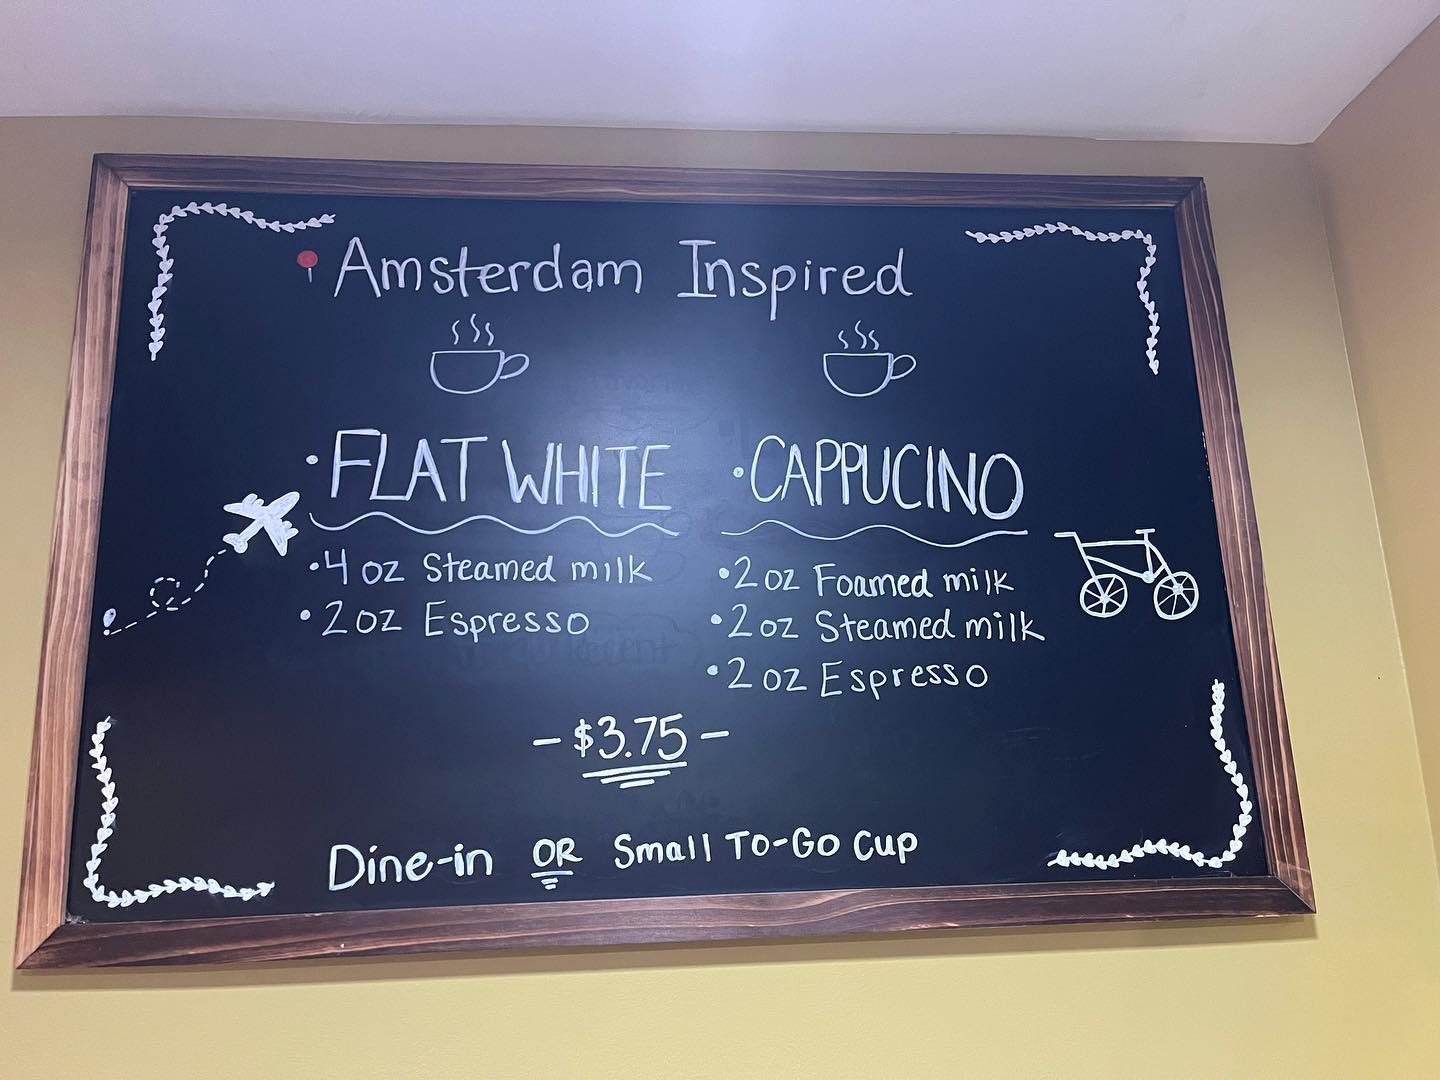 Amsterdam Inspired
• FLAT WHITE
• 4 oz Steamed milk
• 2 oz Espresso
• CAPPUCINO
• 2 oz Foamed milk
• 2 oz Steamed milk
• 2 oz Espresso
- $3.75 -
Dine-in OR Small To-Go Cup